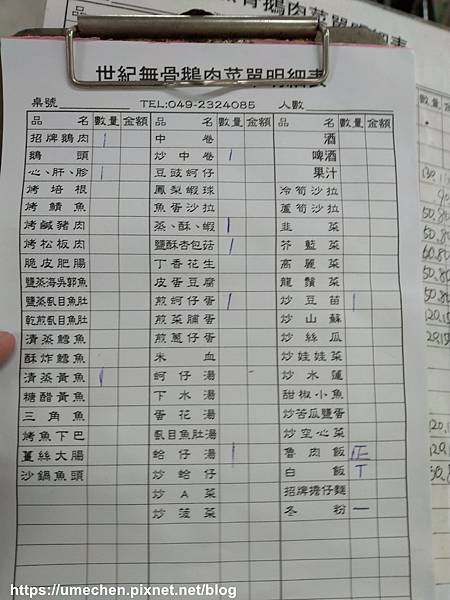 世紀無骨鵝肉菜單明細表
桌號 TEL:049-2324085 人數
品名 數量 金額 品名 數量 金額 品名 數量 金額
招牌鵝肉 中卷 酒
鵝頭 炒中卷 啤酒
心、肝、胗 豆豉蚵仔 果汁
烤培根 鳳梨蝦球 冷筍沙拉
烤鯖魚 魚蛋沙拉 蘆筍沙拉
烤鹹豬肉 蒸、酥、蝦 韭菜
烤松板肉 鹽酥杏包菇 芥藍菜
脆皮肥腸 丁香花生 高麗菜
鹽蒸海吳郭魚 皮蛋豆腐 龍鬚菜
鹽蒸虱目魚肚 煎蚵仔蛋 炒豆苗
乾煎虱目魚肚 煎菜脯蛋 炒山蘇
清蒸鱈魚 煎蔥仔蛋 炒絲瓜
酥炸鱈魚 米血 炒娃娃菜
清蒸黃魚 蚵仔湯 炒水蓮
糖醋黃魚 下水湯 甜椒小魚
三角魚 蛋花湯 炒苦瓜鹽蛋
烤魚下巴 虱目魚肚湯 炒空心菜
薑絲大腸 蛤仔湯 魯肉飯 正
沙鍋魚頭 炒蛤仔 白飯 T
炒A菜 招牌擔仔麵
炒菠菜 冬粉 一
https://umechen.pixnet.net/blog